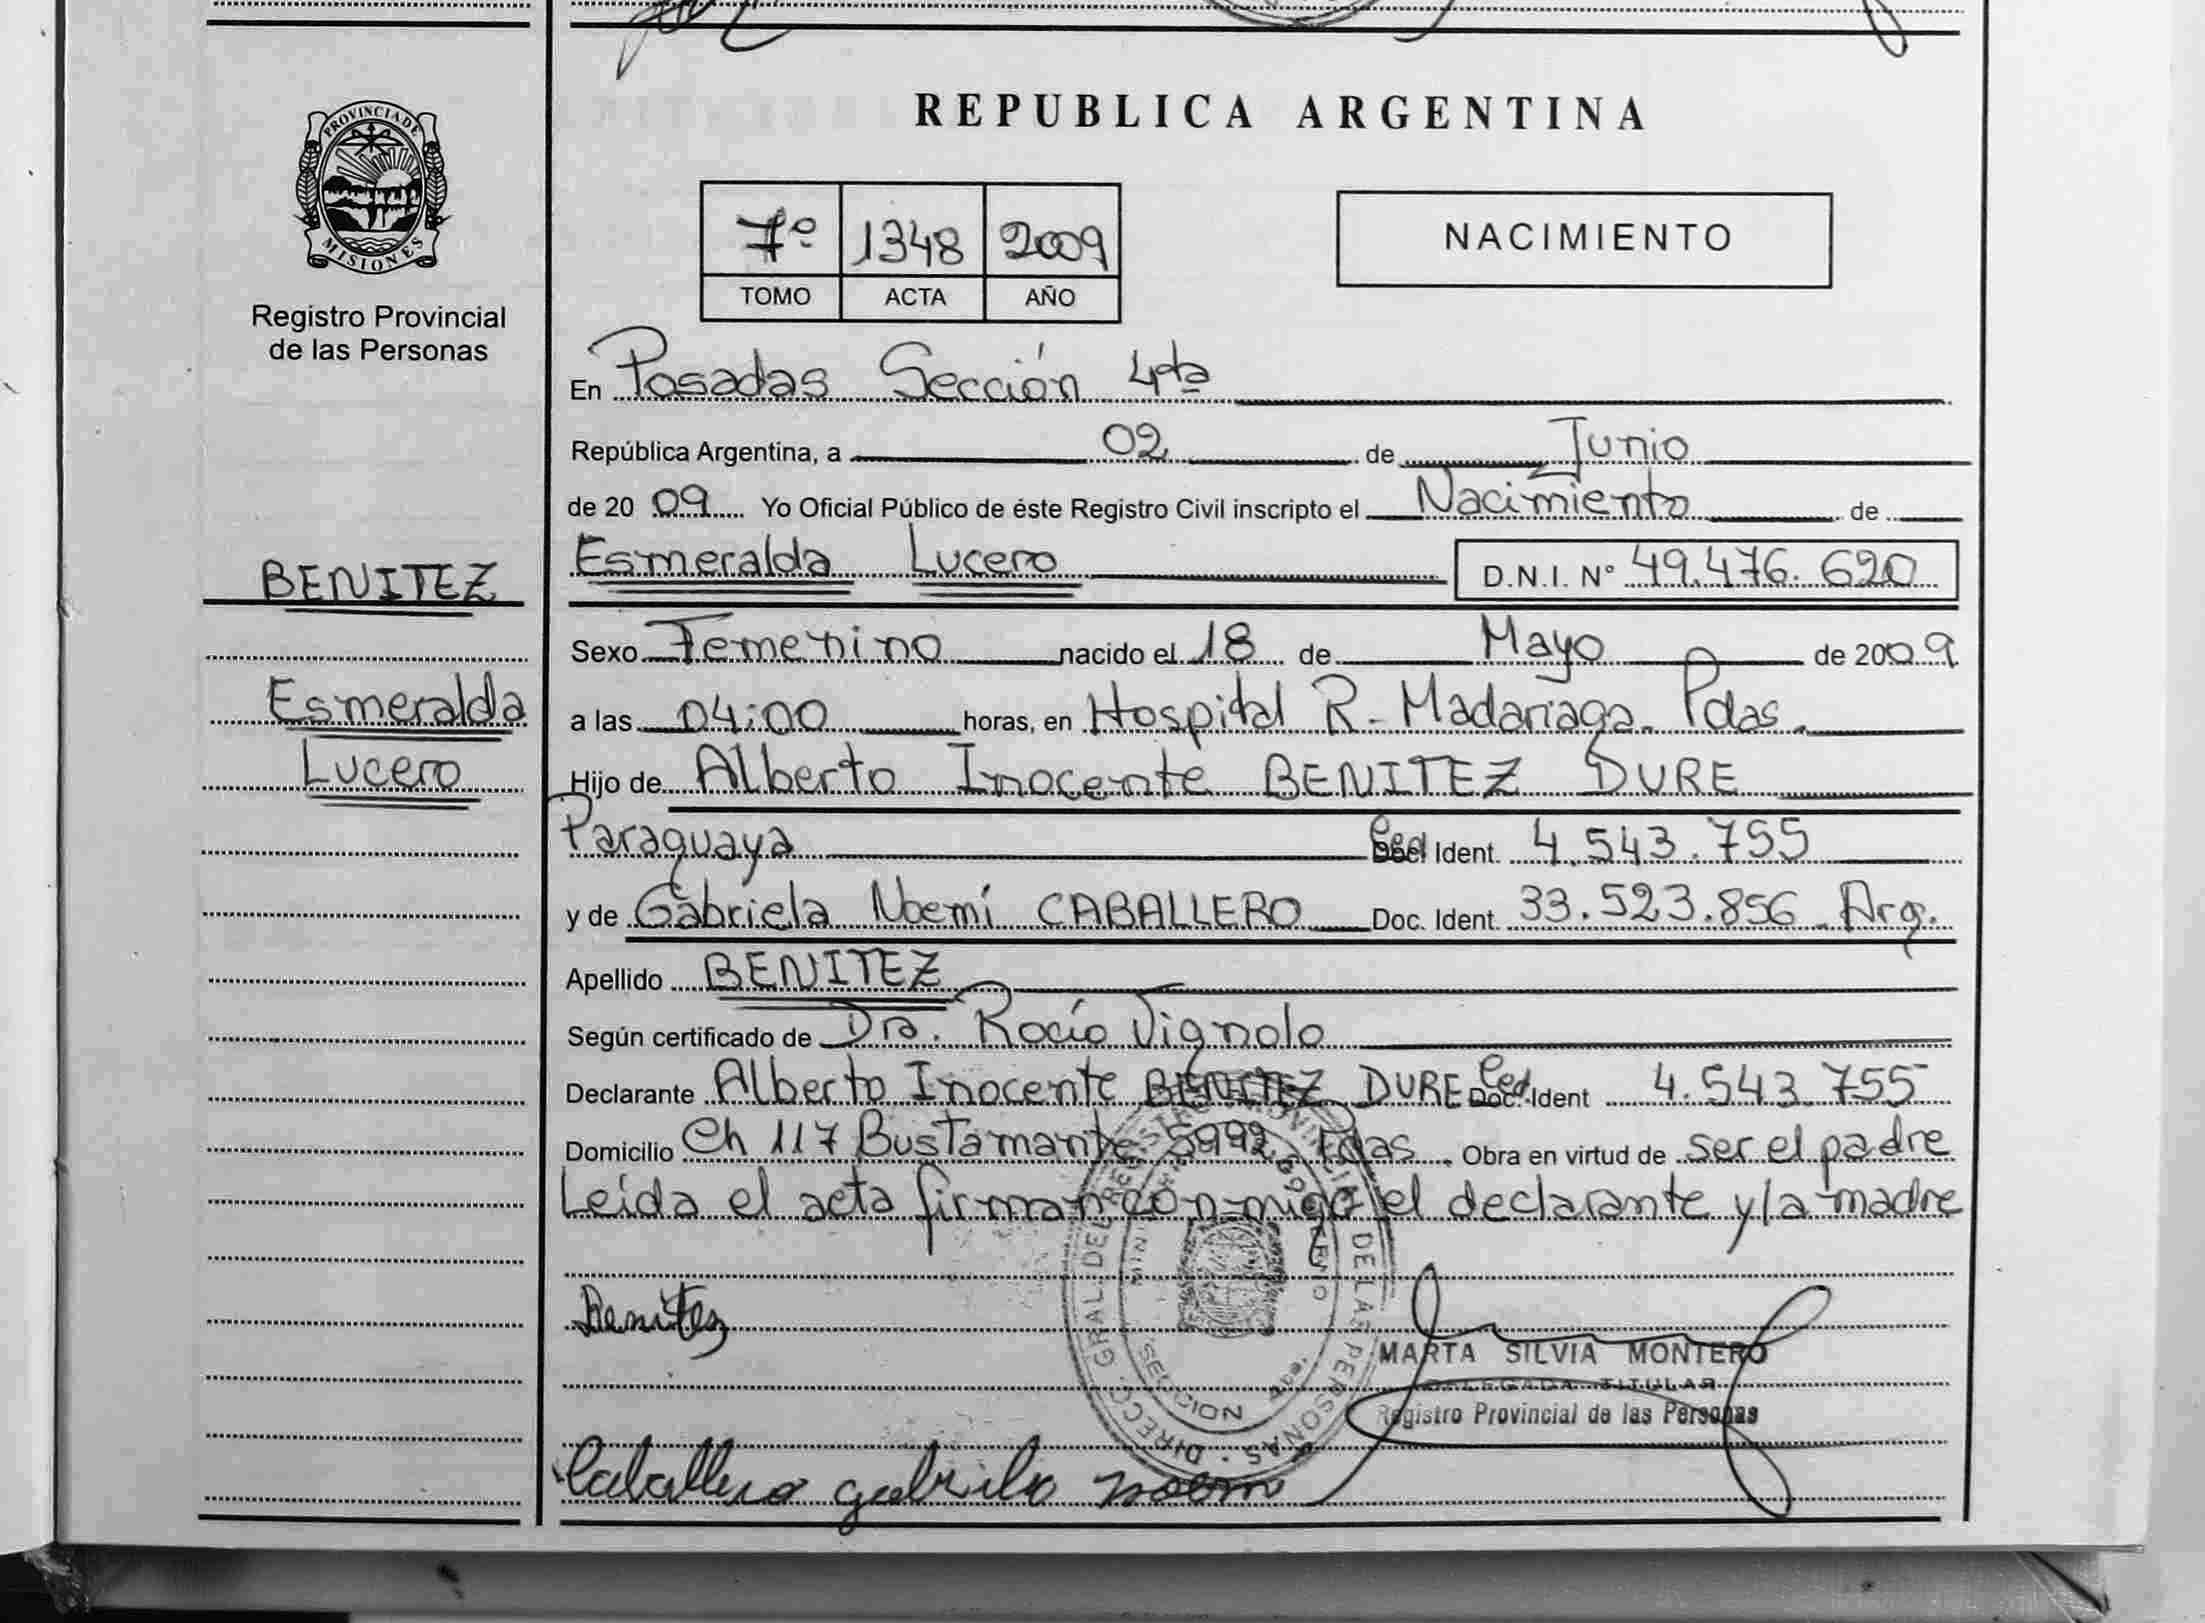 PROVINCIA DE
MISIONES
Registro Provincial
de las Personas
BENITEZ
Esmeralda
Lucero
REPUBLICA ARGENTINA
7º 1348 2009
TOMO ACTA AÑO
NACIMIENTO
En Posadas Sección 4ta
República Argentina, a 02 de Junio
de 2009 Yo Oficial Público de éste Registro Civil inscripto el Nacimiento de
Esmeralda Lucero D.N.I. Nº 49.476.620
Sexo Femenino nacido el 18 de Mayo de 2009
a las 04:00 horas, en Hospital R. Madariaga. Pdas.
Hijo de Alberto Inocente BENITEZ DURE
Paraguaya Ced Ident. 4.543.755
y de Gabriela Noemí CABALLERO Doc. Ident. 33.523.856 Arg.
Apellido BENITEZ
Según certificado de Dra. Rocío Vignolo
Declarante Alberto Inocente BENITEZ DURE Ced. Ident 4.543.755
Domicilio Ch 117 Bustamante 5992 Pdas. Obra en virtud de ser el padre
Leída el acta firman conmigo el declarante y la madre
Benitez
MARTA SILVIA MONTERO
DELEGADA TITULAR
Registro Provincial de las Personas
Caballero gabriela noem